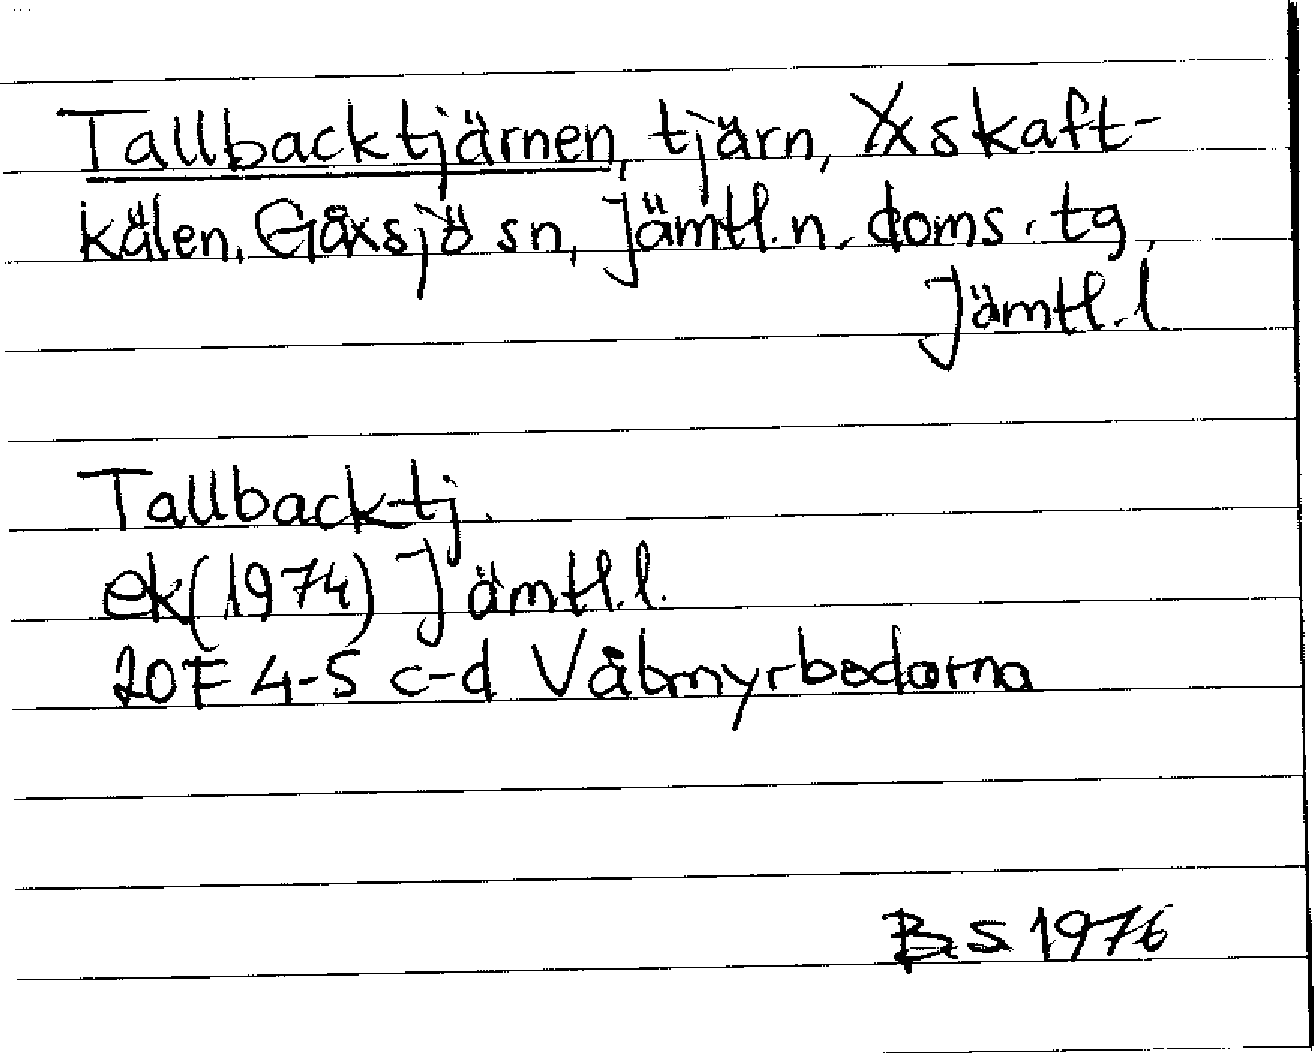 Tallbacktjärnen, tjärn, Yxskaft-
kälen, Gåxsjö sn, Jämtl.n. doms. tg,
Jämtl.l.
Tallbacktj.
ek(1974) Jämtl.l.
20F 4-5 c-d Våtmyrbodarna
BS 1976